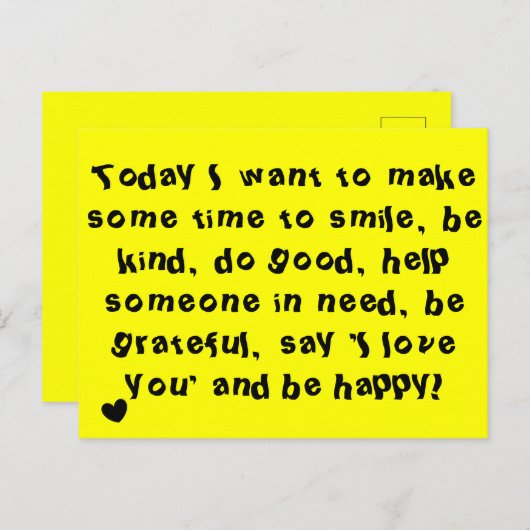 Today I want to make
some time to smile, be
kind, do good, help
someone in need, be
grateful, say 'I love
you' and be happy!